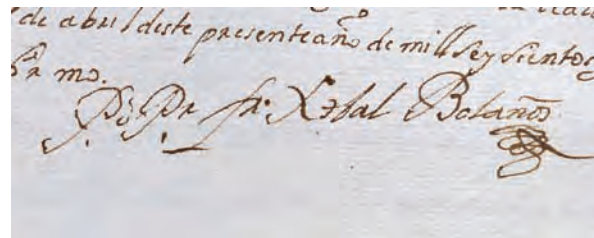 de abril deste presente año de mill seys sientos
Pr mo.
Po. Pr fr. Xobal Bolaños